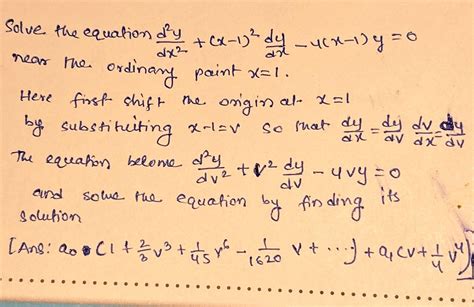 Solve the equation d²y/dx² + (x-1)² dy/dx - 4(x-1) y = 0
near the ordinary point x=1.
Here first shift the origin at x=1
by substituiting x-1=v so that dy/dx = dy/dv dv/dx = dy/dv
The equation become d²y/dv² + v² dy/dv - 4vy = 0
and solve the equation by finding its
solution
[Ans: a₀ (1 + 2/3 v³ + 1/45 v⁶ - 1/1620 v + ...) + a₁ (v + 1/4 v⁴)]